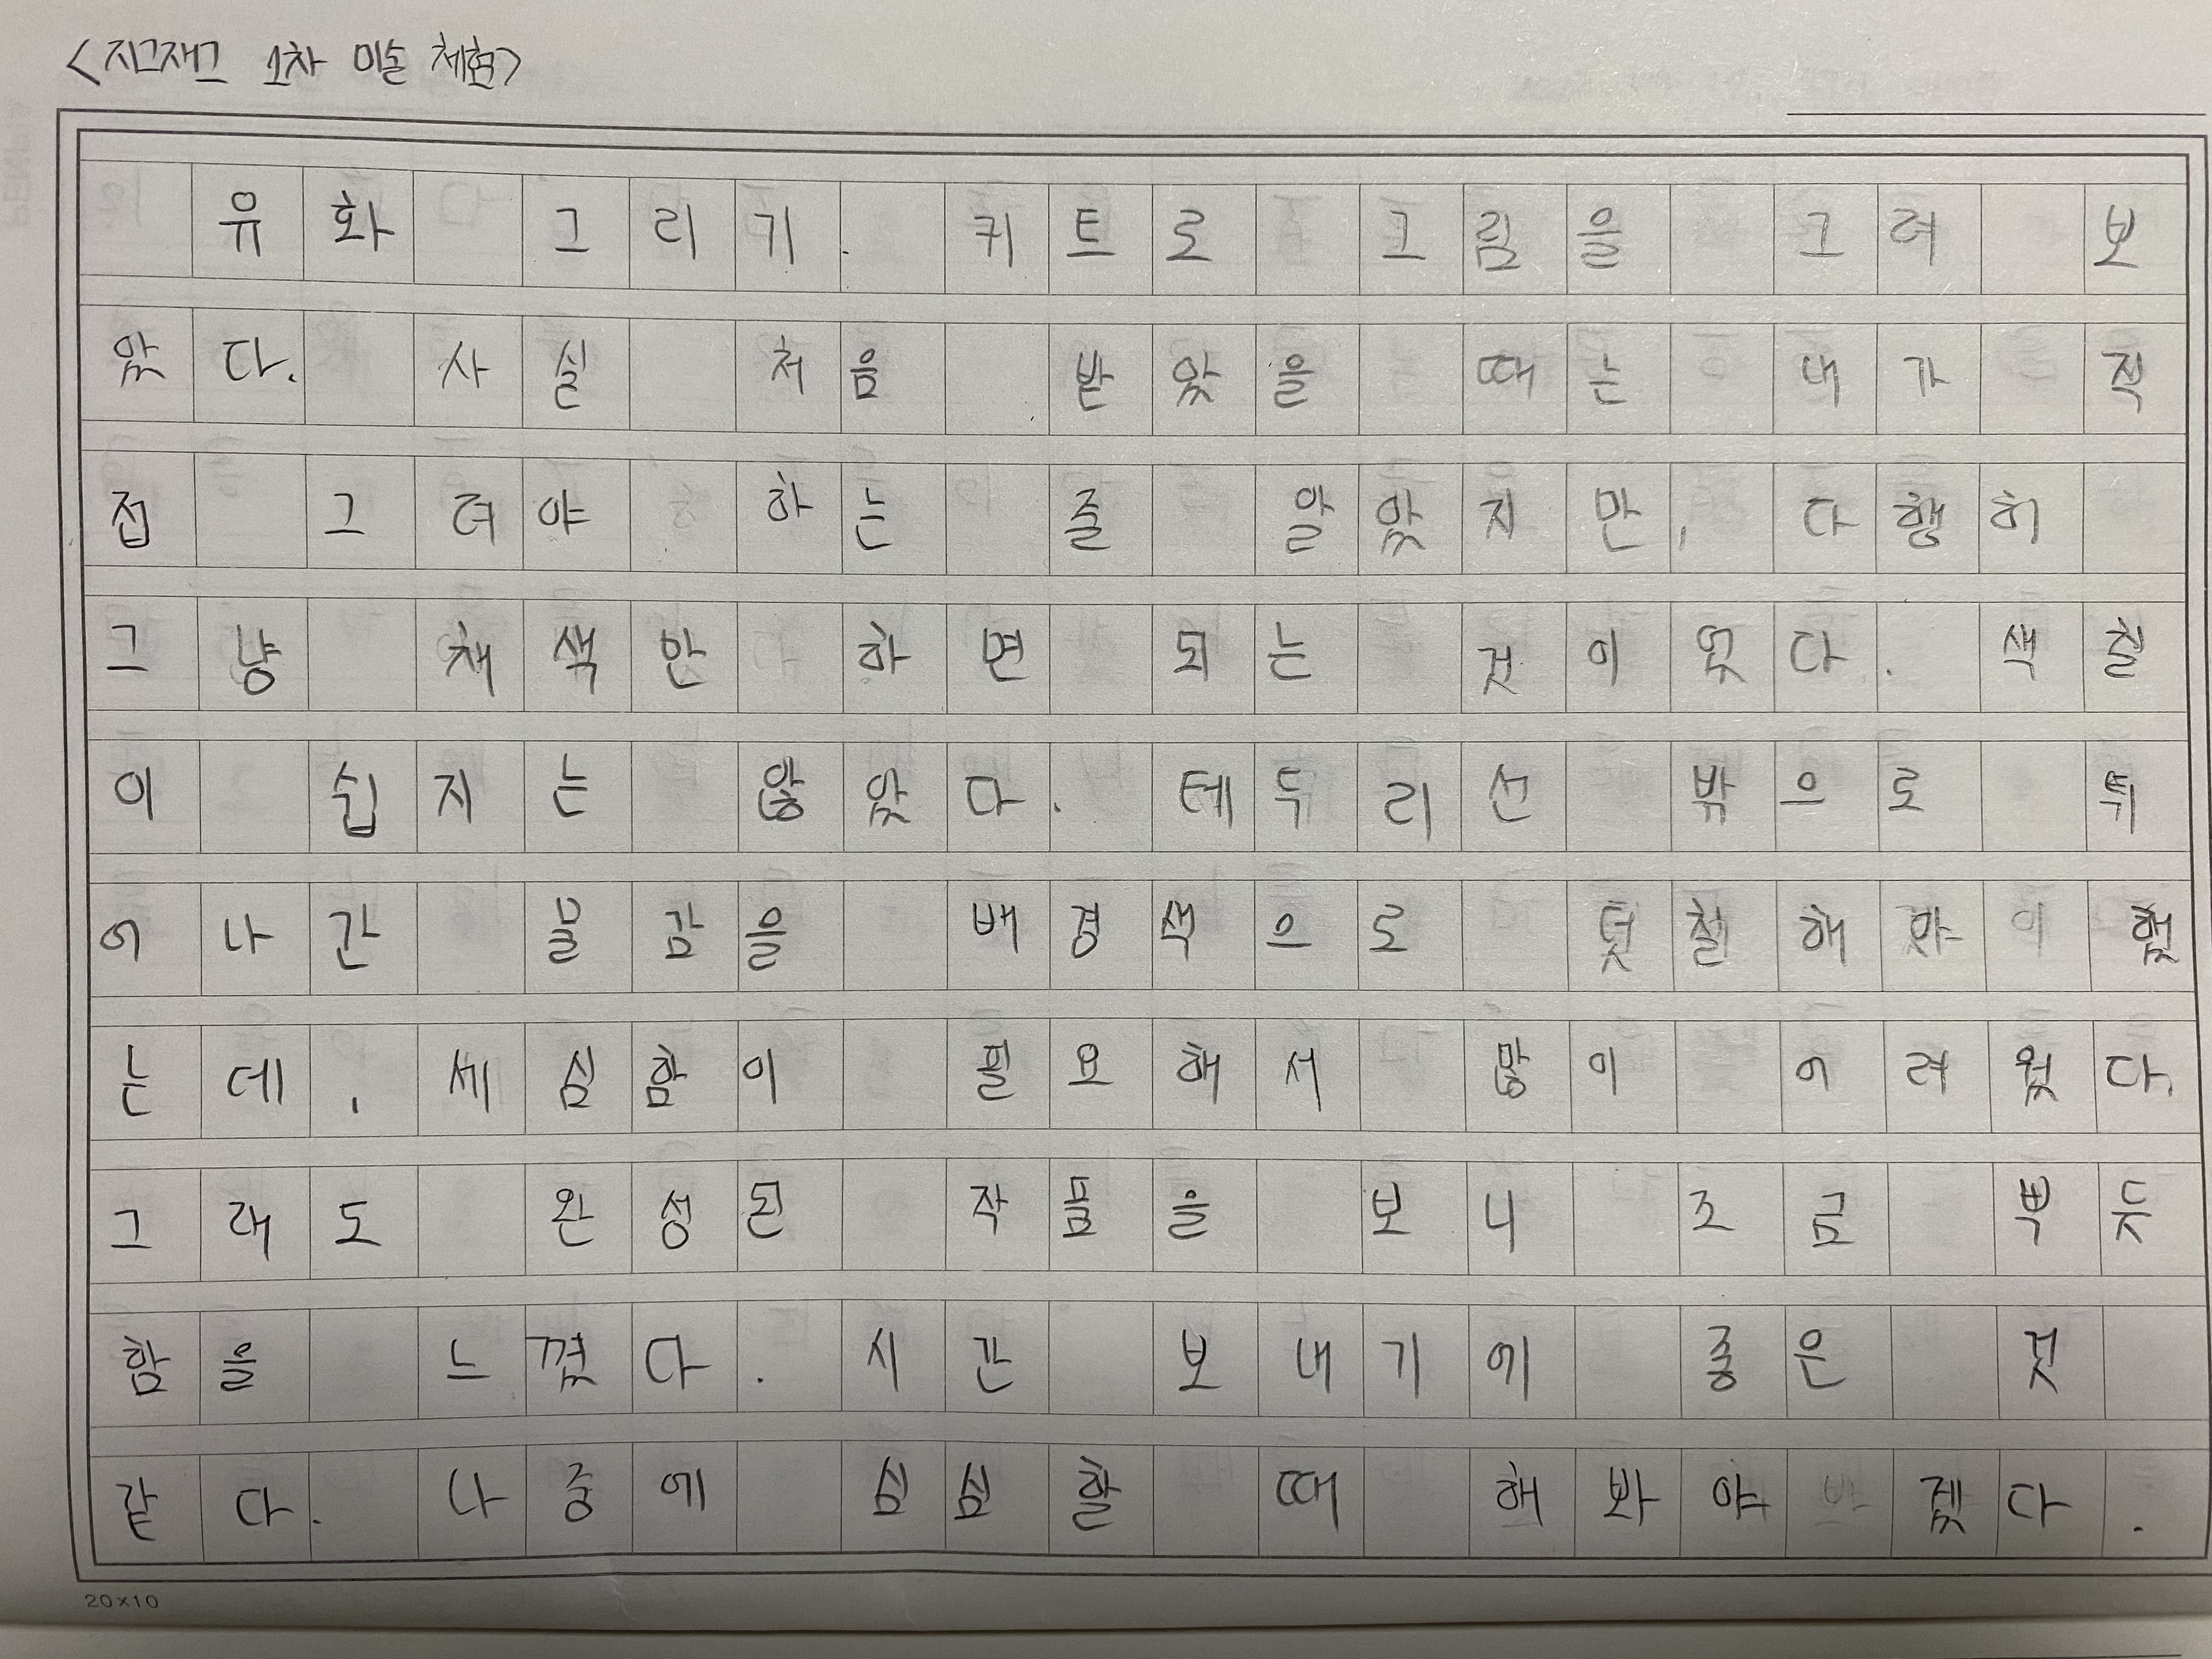 <지그재그 1차 미술 체험>
유화 그리기. 키트로 그림을 그려 보
았다. 사실 처음 받았을 때는 내가 직
접 그려야 하는 줄 알았지만, 다행히
그냥 채색만 하면 되는 것이었다. 색칠
이 쉽지는 않았다. 테두리선 밖으로 튀
어나간 물감을 배경색으로 덧칠해야 했
는데, 세심함이 필요해서 많이 어려웠다.
그래도 완성된 작품을 보니 조금 뿌듯
함을 느꼈다. 시간 보내기에 좋은 것
같다. 나중에 심심할 때 해봐야겠다.
20×10